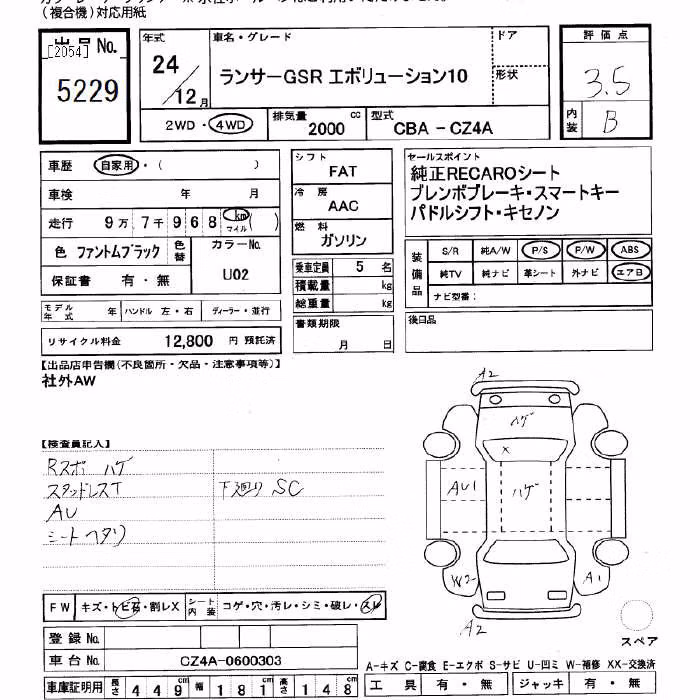 (複合機)対応用紙
出品No.
[2054]
5229
年式
24/12月
車名・グレード
ランサーGSR エボリューション10
ドア
形状
評価点
3.5
内装
B
2WD・4WD
排気量
2000 cc
型式
CBA - CZ4A
車歴 自家用・( )
車検 年 月
走行 9万 7千 9 6 8 km マイル ( )
色 ファントムブラック
色替
カラーNo.
U02
保証書 有・無
モデル年式 年 ハンドル 左・右 ディーラー・並行
リサイクル料金 12,800 円 預託済
シフト
FAT
冷房
AAC
燃料
ガソリン
乗車定員 5 名
積載量 kg
総重量 kg
書類期限
月 日
セールスポイント
純正RECAROシート
ブレンボブレーキ・スマートキー
パドルシフト・キセノン
装備品
S/R 純A/W P/S P/W ABS
純TV 純ナビ 革シート 外ナビ エアB
ナビ型番:
後日品
【出品店申告欄(不良箇所・欠品・注意事項等)】
社外AW
【検査員記入】
Rスポ ハゲ
スタッドレスT
下廻り SC
AU
シートヘタリ
A2
ハゲ
X
AU1
ハゲ
W2
A1
A2
スペア
FW キズ・トビ石・割レX
シート内装 コゲ・穴・汚レ・シミ・破レ・スレ
登録No.
車台No. CZ4A-0600303
車庫証明用 長さ 449 幅 181 高さ 148
A-キズ C-腐食 E-エクボ S-サビ U-凹ミ W-補修 XX-交換済
工具 有・無 ジャッキ 有・無